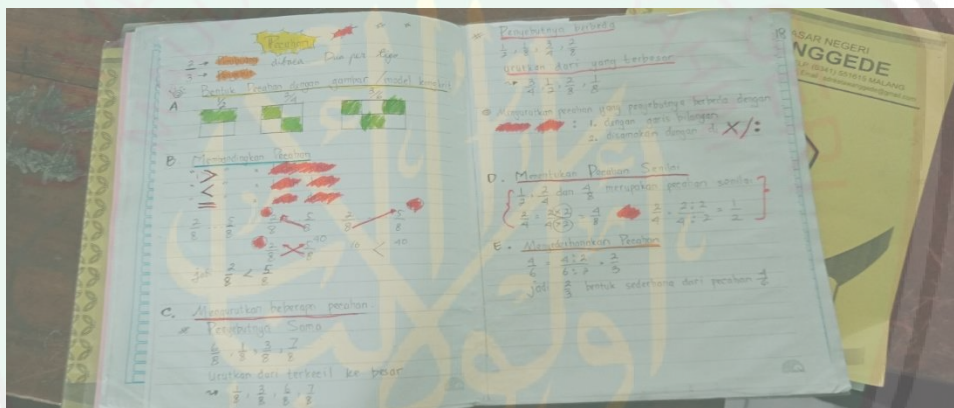 Pecahan
2/3 → dibaca Dua per tiga
Bentuk Pecahan dengan gambar / model konkret
A 1/2 2/4 3/6
B Membandingkan Pecahan
>
<
=
2/8 . 5/8 2/8 5/8 2/8 5/8
2/8 5/8 40 16 < 40
jadi 2/8 < 5/8
C. Mengurutkan beberapa pecahan.
* Penyebutnya Sama
6/8 , 1/8 , 3/8 , 7/8
Urutkan dari terkecil ke besar
1/8 , 3/8 , 6/8 , 7/8
* Penyebutnya berbeda
urutkan dari yang terbesar
→ 3/4 , 1/2 , 2/8 , 1/8
Mengurutkan pecahan yang penyebutnya berbeda dengan
: 1. dengan garis bilangan
2. disamakan dengan di X/:
D. Menentukan Pecahan Senilai
1/2 , 2/4 dan 4/8 merupakan pecahan senilai
2/4 = 2×2/4×2 = 4/8 2/4 = 2:2/4:2 = 1/2
E. Menyederhanakan Pecahan
4/6 = 4:2/6:2 = 2/3
jadi 2/3 bentuk sederhana dari pecahan 4/6
ASAR NEGERI
NGGEDE
MALANG